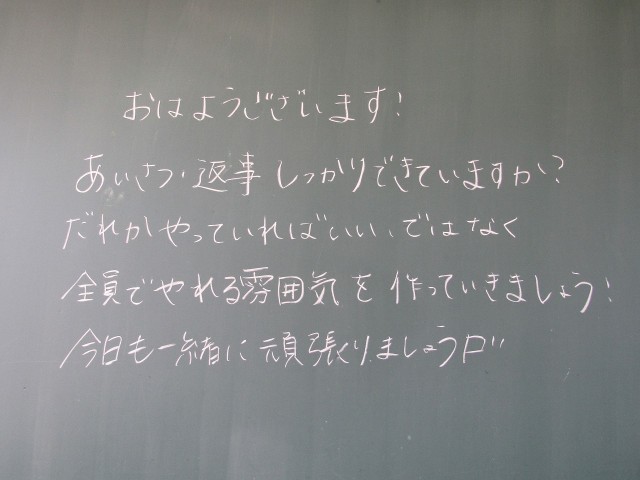 おはようございます!
あいさつ・返事しっかりできていますか?
だれかやっていればいい、ではなく
全員でやれる雰囲気を作っていきましょう!
今日も一緒に頑張りましょう